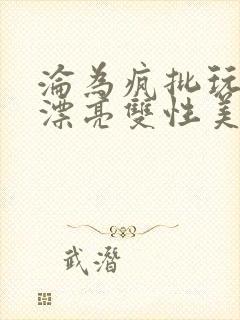 淪為瘋批玩
漂亮雙性美
武潛